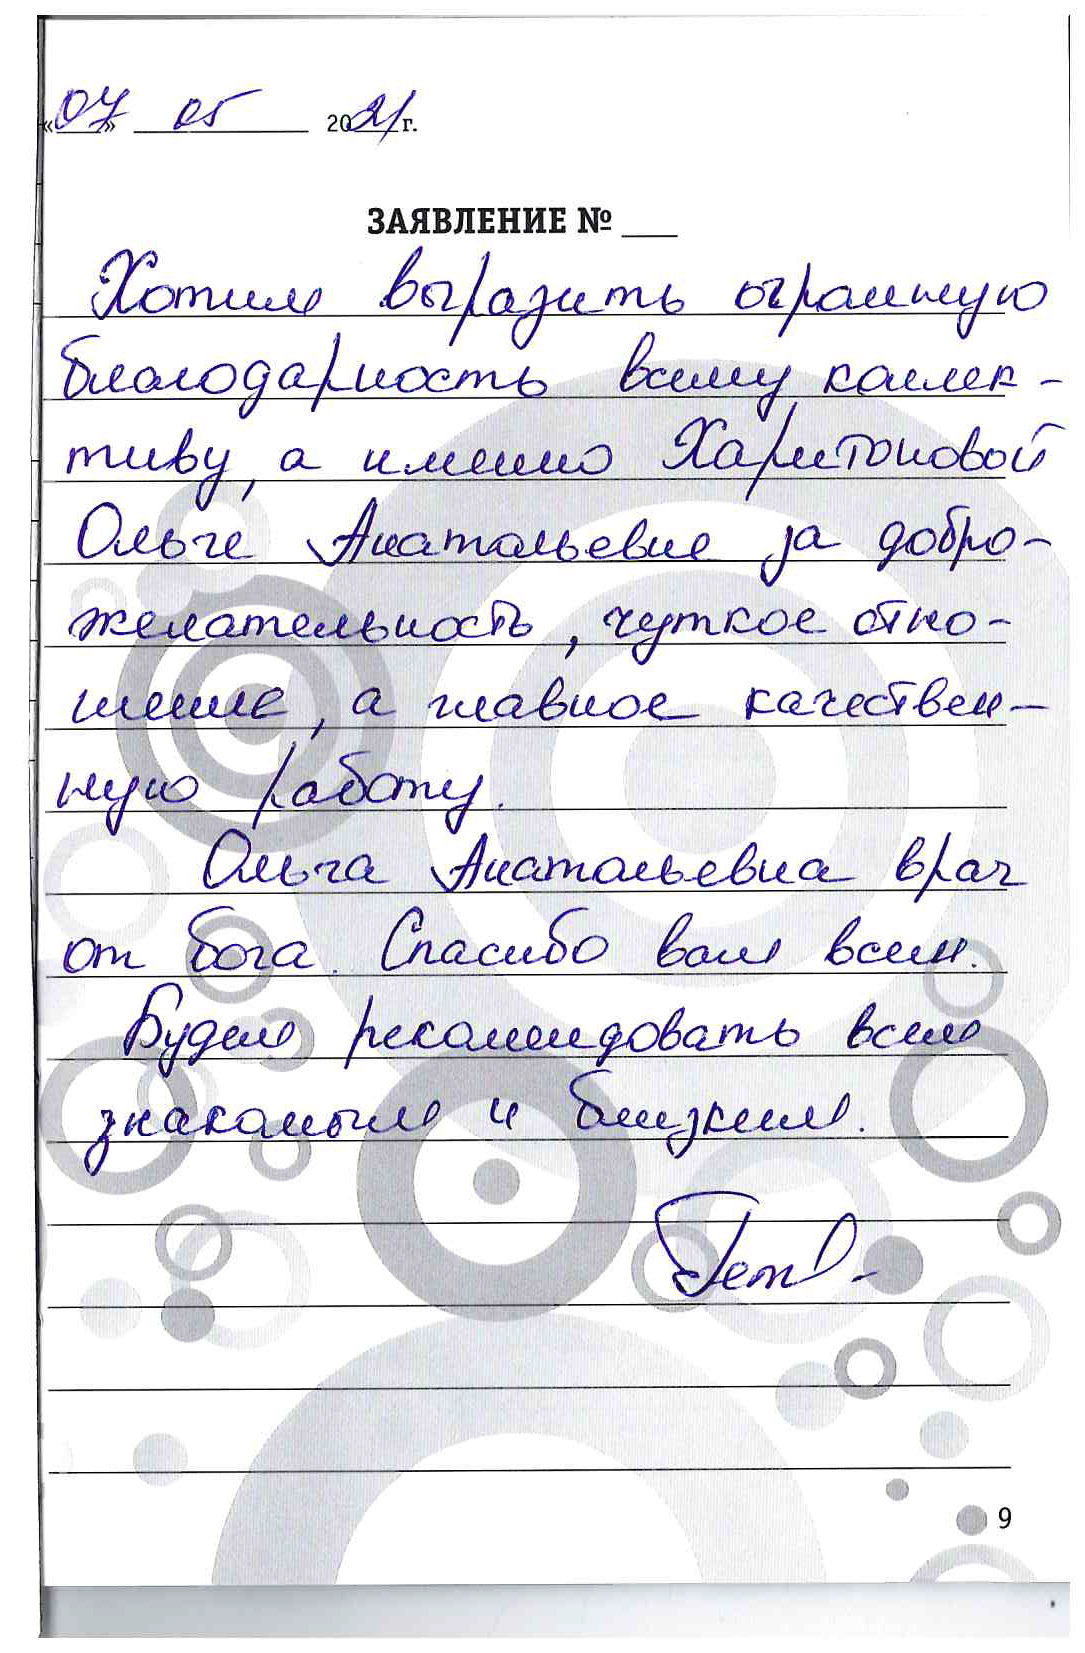 «07» 05 2021 г.
ЗАЯВЛЕНИЕ № ___
Хотим выразить огромную
благодарность всему коллек-
тиву, а именно Харитоновой
Ольге Анатольевне за добро-
желательность, чуткое отно-
шение, а главное качествен-
ную работу.
Ольга Анатольевна врач
от бога. Спасибо вам всем.
Будем рекомендовать всем
знакомым и близким.
9